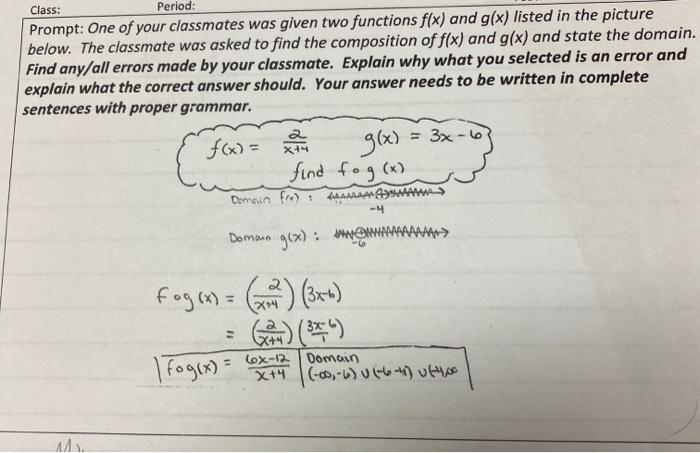 Class: Period:
Prompt: One of your classmates was given two functions f(x) and g(x) listed in the picture
below. The classmate was asked to find the composition of f(x) and g(x) and state the domain.
Find any/all errors made by your classmate. Explain why what you selected is an error and
explain what the correct answer should. Your answer needs to be written in complete
sentences with proper grammar.
f(x) = 2/(x+4) g(x) = 3x-6
find f∘g (x)
Domain f(x) :
-4
Domain g(x) :
-6
f∘g(x) = (2/(x+4)) (3x-6)
= (2/(x+4)) ((3x-6)/1)
f∘g(x) = (6x-12)/(x+4) Domain
(-∞,-6) ∪ (-6,-4) ∪ (-4,∞